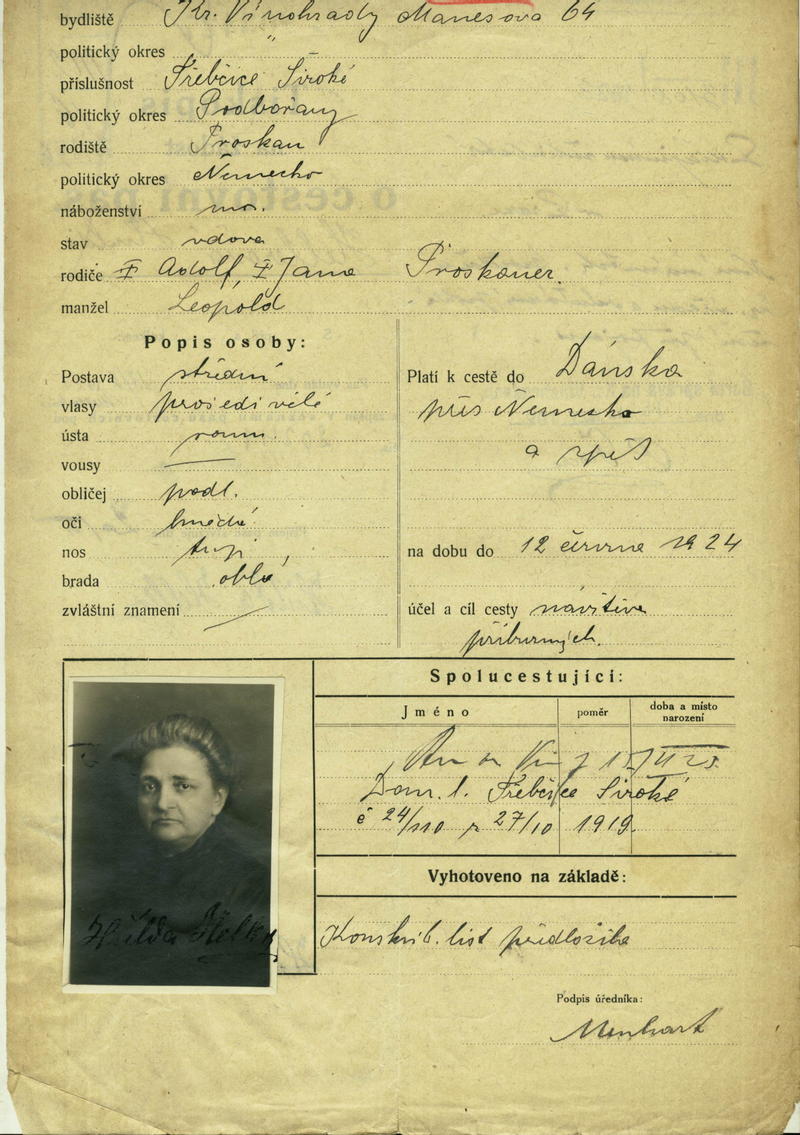 bydliště Kr. Vinohrady Manesova 64
politický okres "
příslušnost Třebčice Široké
politický okres Podbořany
rodiště Proskau
politický okres Německo
náboženství mos.
stav vdova
rodiče Adolf, Jana Proskauer.
manžel Leopold
Popis osoby:
Postava střední
vlasy prošedivělé
ústa rovn.
vousy —
obličej podl.
oči hnědé
nos tupý
brada oblá
zvláštní znamení
Platí k cestě do Dánska
přes Německo
a zpět
na dobu do 12 června 1924
účel a cíl cesty návštěva
příbuzných.
Spolucestující:
Jméno poměr doba a místo narození
Dom. l. Třebčice Široké
č 24/110 z 27/10 1919.
Vyhotoveno na základě:
Konskrib. list předložila
Hilda
Podpis úředníka:
Menhart